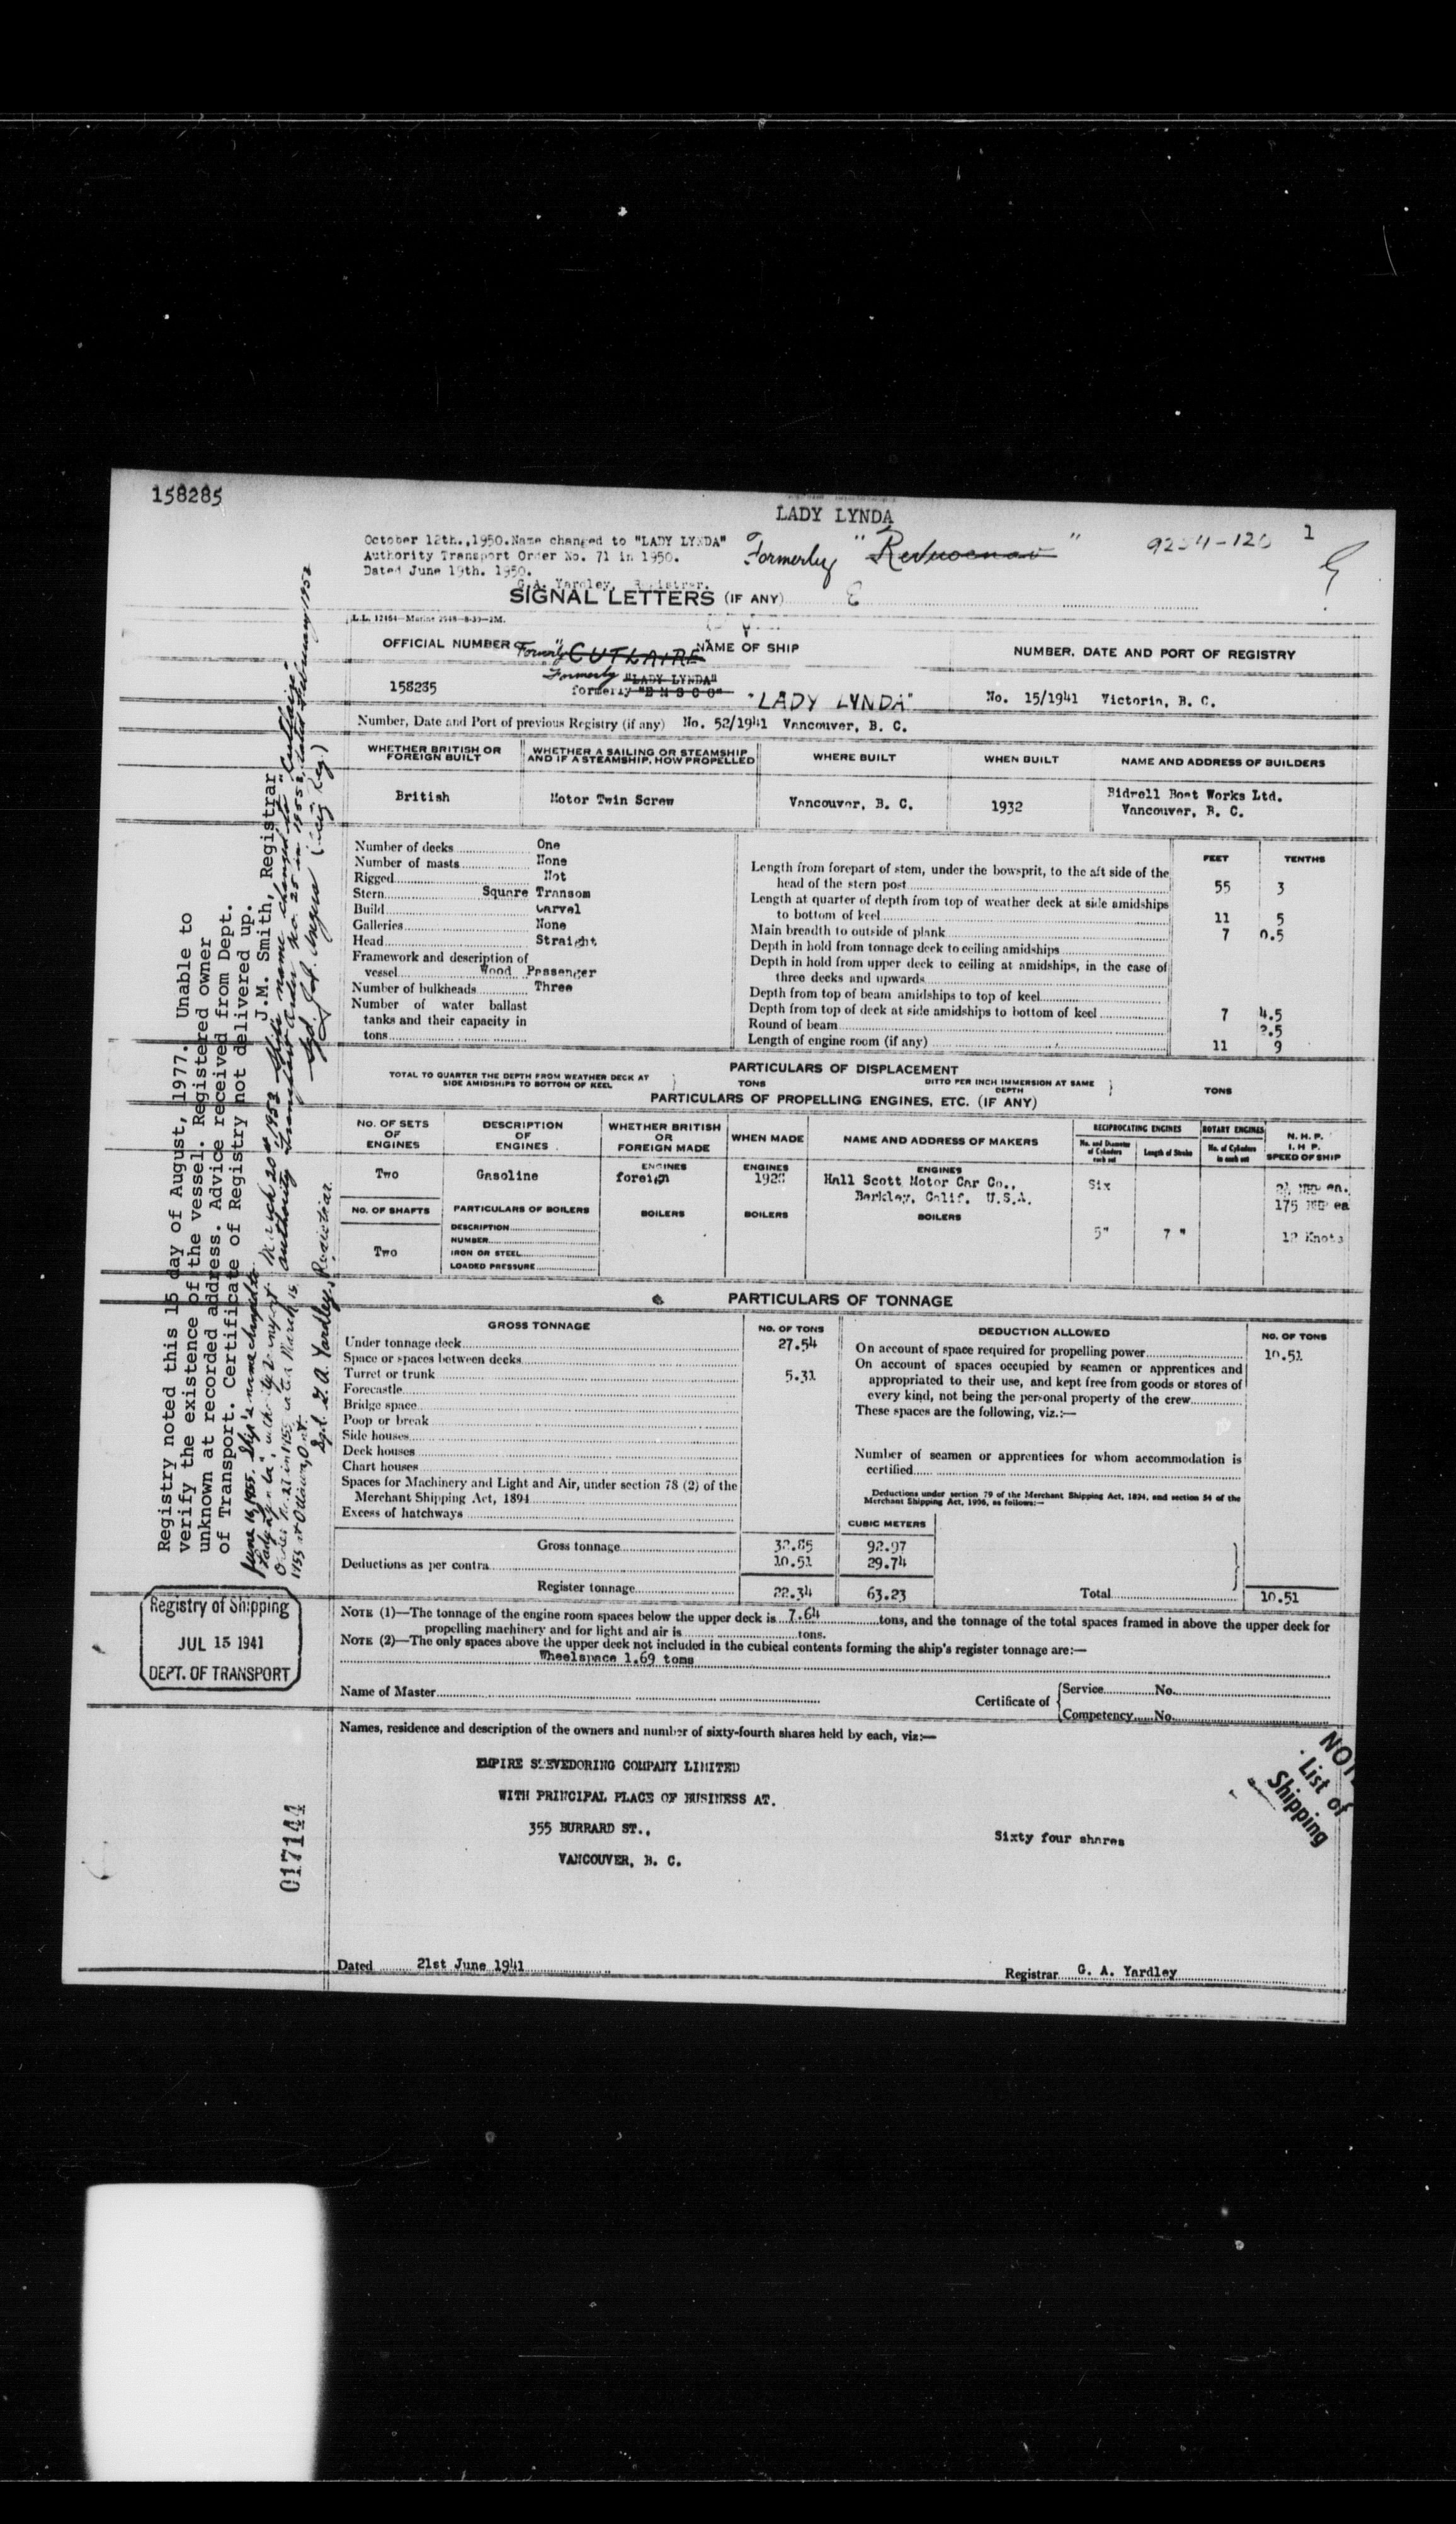 158285
LADY LYNDA
1
October 12th.,1950.Name changed to "LADY LYNDA"
Authority Transport Order No. 71 in 1950.
Dated June 19th. 1950.
G.A. Yardley, Registrar.
Formerly " "
SIGNAL LETTERS (IF ANY)
L.L. 12464—Marine 2948—8-39—2M.
OFFICIAL NUMBER
NAME OF SHIP
NUMBER, DATE AND PORT OF REGISTRY
Formerly "CUTLAIRE
Formerly "LADY LYNDA"
158285
formerly "E N S C O"
"LADY LYNDA"
No. 15/1941 Victoria, B. C.
Number, Date and Port of previous Registry (if any) No. 52/1941 Vancouver, B. C.
WHETHER BRITISH OR FOREIGN BUILT
WHETHER A SAILING OR STEAMSHIP AND IF A STEAMSHIP, HOW PROPELLED
WHERE BUILT
WHEN BUILT
NAME AND ADDRESS OF BUILDERS
British
Motor Twin Screw
Vancouver, B. C.
1932
Bidwell Boat Works Ltd.
Vancouver, B. C.
Number of decks One
Number of masts None
Rigged Not
Stern Square Transom
Build Carvel
Galleries None
Head Straight
Framework and description of
vessel Wood Passenger
Number of bulkheads Three
Number of water ballast
tanks and their capacity in
tons
FEET TENTHS
Length from forepart of stem, under the bowsprit, to the aft side of the
head of the stern post 55 3
Length at quarter of depth from top of weather deck at side amidships
to bottom of keel 11 5
Main breadth to outside of plank 7 0.5
Depth in hold from tonnage deck to ceiling amidships
Depth in hold from upper deck to ceiling at amidships, in the case of
three decks and upwards
Depth from top of beam amidships to top of keel
Depth from top of deck at side amidships to bottom of keel 7 4.5
Round of beam 2.5
Length of engine room (if any) 11 9
PARTICULARS OF DISPLACEMENT
TOTAL TO QUARTER THE DEPTH FROM WEATHER DECK AT
SIDE AMIDSHIPS TO BOTTOM OF KEEL
TONS
DITTO PER INCH IMMERSION AT SAME
DEPTH
TONS
PARTICULARS OF PROPELLING ENGINES, ETC. (IF ANY)
NO. OF SETS OF ENGINES
DESCRIPTION OF ENGINES
WHETHER BRITISH OR FOREIGN MADE
WHEN MADE
NAME AND ADDRESS OF MAKERS
RECIPROCATING ENGINES
No. and Diameter of Cylinders each set
Length of Stroke
ROTARY ENGINES
No. of Cylinders in each set
N. H. P.
I. H. P.
SPEED OF SHIP
Two
Gasoline
ENGINES
foreign
ENGINES
ENGINES
Hall Scott Motor Car Co.,
Berkley, Calif. U.S.A.
Six
175 ea
NO. OF SHAFTS
PARTICULARS OF BOILERS
BOILERS
BOILERS
BOILERS
Two
DESCRIPTION
NUMBER
IRON OR STEEL
LOADED PRESSURE
5"
7 "
12 Knots
PARTICULARS OF TONNAGE
GROSS TONNAGE
NO. OF TONS
DEDUCTION ALLOWED
NO. OF TONS
Under tonnage deck 27.54
Space or spaces between decks
Turret or trunk 5.31
Forecastle
Bridge space
Poop or break
Side houses
Deck houses
Chart houses
Spaces for Machinery and Light and Air, under section 78 (2) of the
Merchant Shipping Act, 1894
Excess of hatchways
On account of space required for propelling power 10.51
On account of spaces occupied by seamen or apprentices and
appropriated to their use, and kept free from goods or stores of
every kind, not being the personal property of the crew
These spaces are the following, viz.:—
Number of seamen or apprentices for whom accommodation is
certified
Deductions under section 79 of the Merchant Shipping Act, 1894, and section 54 of the
Merchant Shipping Act, 1906, as follows:—
CUBIC METERS
Gross tonnage 32.85 92.97
Deductions as per contra 10.51 29.74
Register tonnage 22.34 63.23
Total 10.51
NOTE (1)—The tonnage of the engine room spaces below the upper deck is 7.64 tons, and the tonnage of the total spaces framed in above the upper deck for
propelling machinery and for light and air is tons.
NOTE (2)—The only spaces above the upper deck not included in the cubical contents forming the ship's register tonnage are:—
Wheelspace 1.69 tons
Name of Master
Certificate of
Service No.
Competency No.
Names, residence and description of the owners and number of sixty-fourth shares held by each, viz:—
EMPIRE STEVEDORING COMPANY LIMITED
WITH PRINCIPAL PLACE OF BUSINESS AT.
355 BURRARD ST.,
VANCOUVER, B. C.
Sixty four shares
List of
Shipping
Dated 21st June 1941
Registrar G. A. Yardley
Registry noted this 15 day of August, 1977. Unable to
verify the existence of the vessel. Registered owner
unknown at recorded address. Advice received from Dept.
of Transport. Certificate of Registry not delivered up.
J.M. Smith, Registrar
June 16, 1955. Ship's name changed to
Sgd. G. A. Yardley, Registrar.
Registry of Shipping
JUL 15 1941
DEPT. OF TRANSPORT
017144